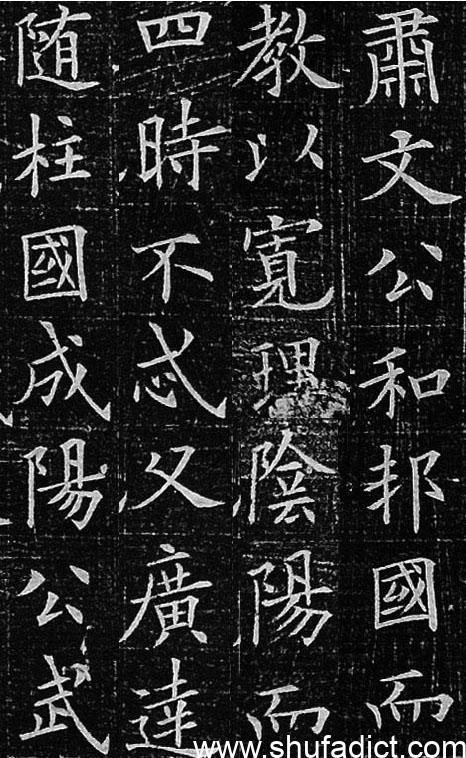 肅文公和邦國而
教以寬理陰陽而
四時不忒父廣達
随柱國成陽公武
www.shufadict.com